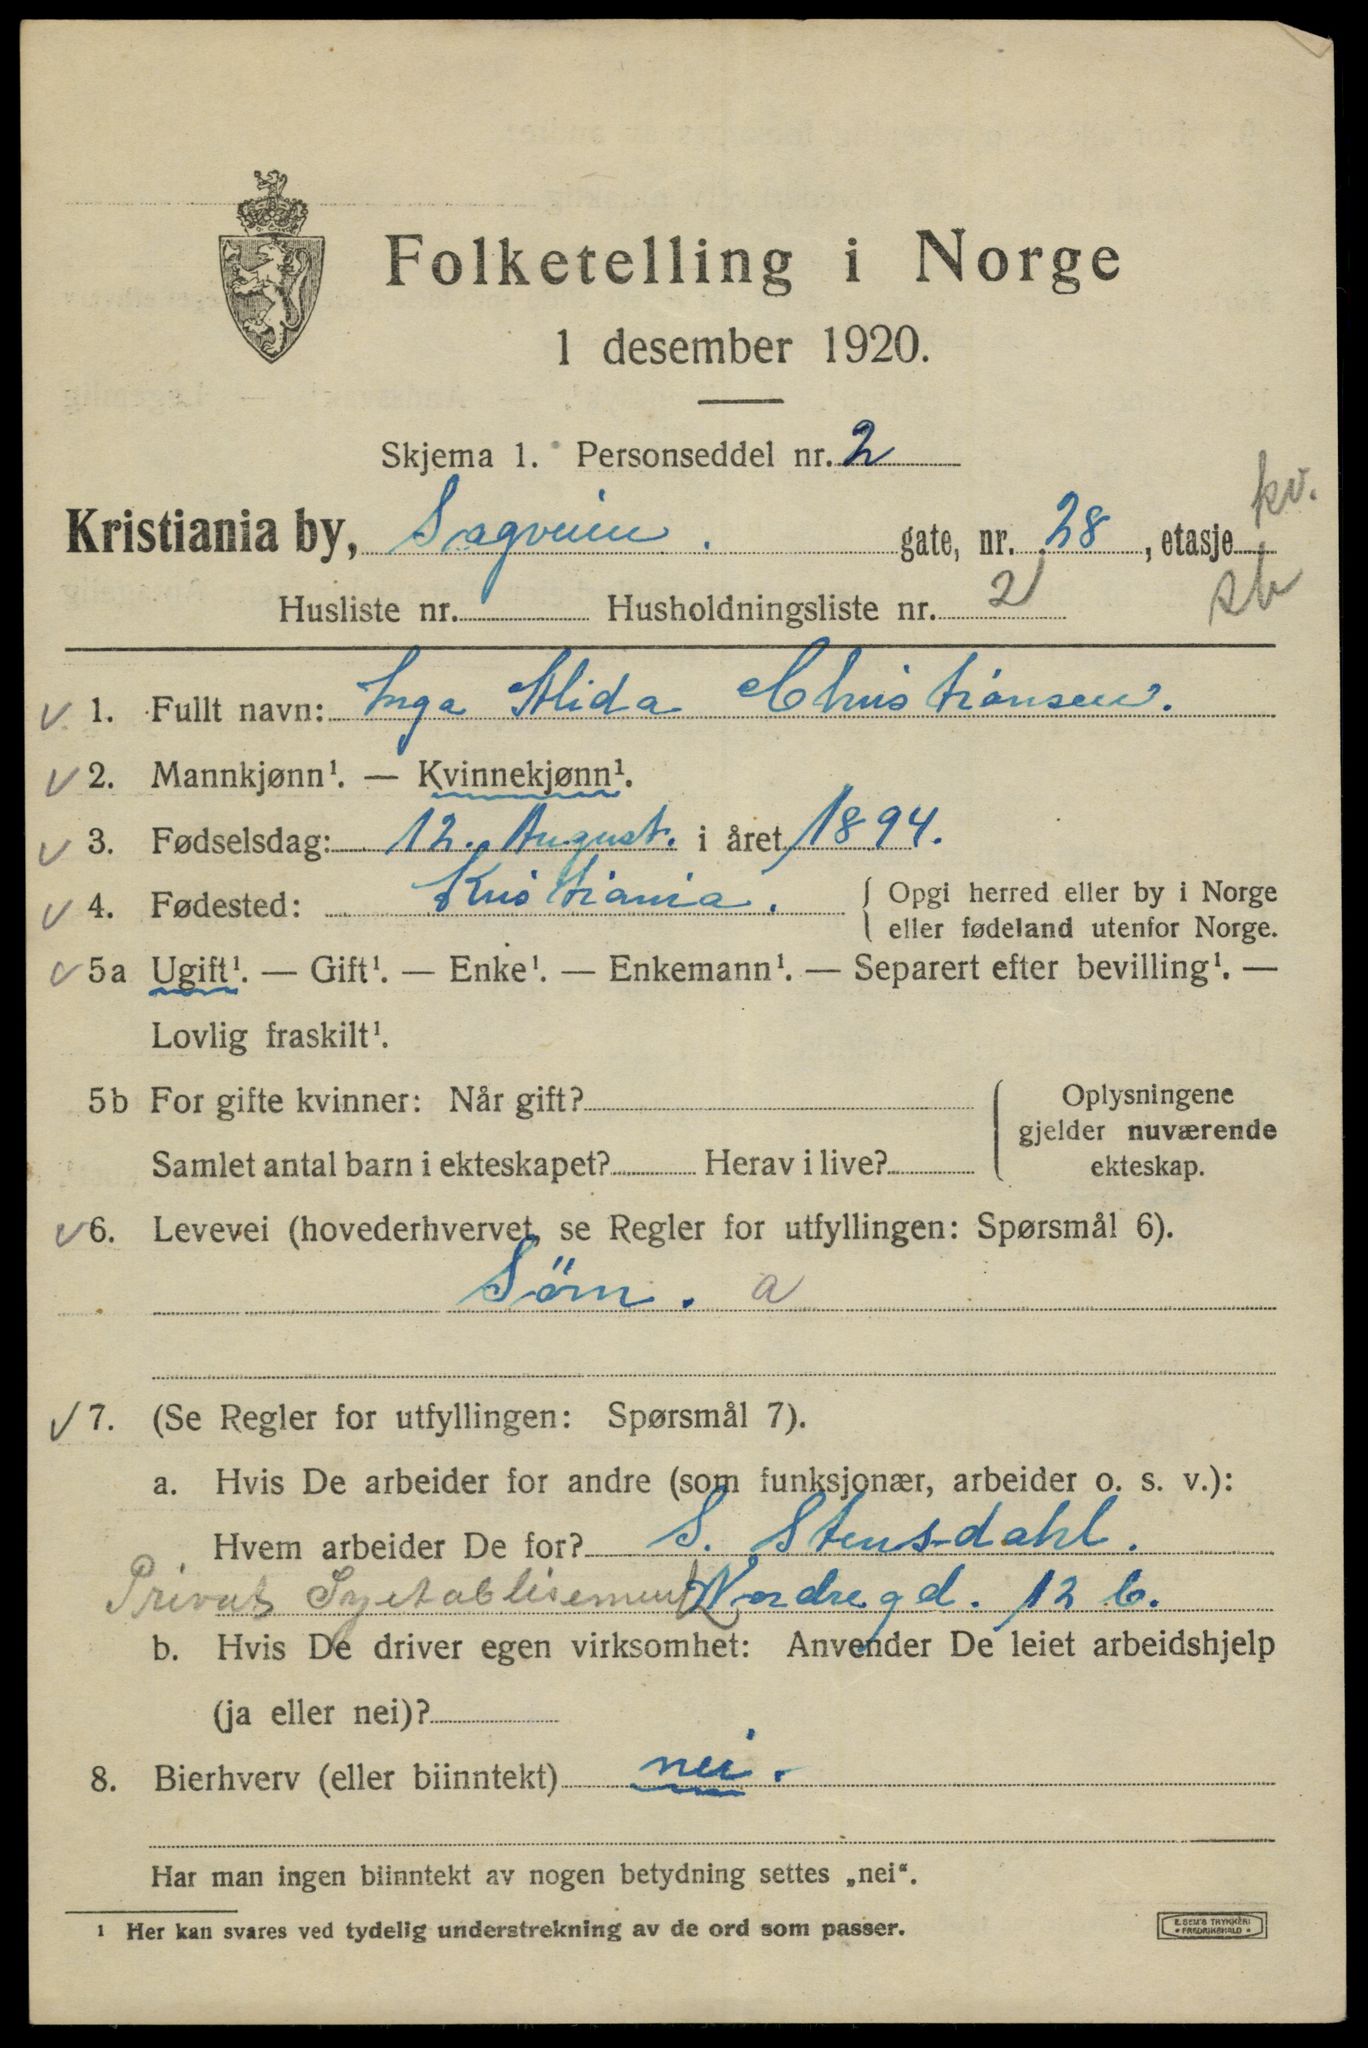 Folketelling i Norge
1 desember 1920.
Skjema 1. Personseddel nr. 2
kv.
Kristiania by, Sagveien. gate, nr. 28, etasje
Husliste nr. Husholdningsliste nr. 2
1. Fullt navn: Inga Alida Christiansen.
2. Mannkjønn¹. — Kvinnekjønn¹.
3. Fødselsdag: 12. August. i året 1894.
4. Fødested: Kristiania. { Opgi herred eller by i Norge
eller fødeland utenfor Norge.
5a Ugift¹. — Gift¹. — Enke¹. — Enkemann¹. — Separert efter bevilling¹. —
Lovlig fraskilt¹.
5b For gifte kvinner: Når gift? { Oplysningene
gjelder nuværende
Samlet antal barn i ekteskapet? Herav i live? ekteskap.
6. Levevei (hovederhvervet, se Regler for utfyllingen: Spørsmål 6).
Söm. a
7. (Se Regler for utfyllingen: Spørsmål 7).
a. Hvis De arbeider for andre (som funksjonær, arbeider o. s. v.):
Hvem arbeider De for? S. Stensdahl.
Privat Syetablisement Nordregd. 12 b.
b. Hvis De driver egen virksomhet: Anvender De leiet arbeidshjelp
(ja eller nei)?
8. Bierhverv (eller biinntekt) nei.
Har man ingen biinntekt av nogen betydning settes „nei“.
¹ Her kan svares ved tydelig understrekning av de ord som passer.
E. SEM'S TRYKKERI
• FREDRIKSHALD •